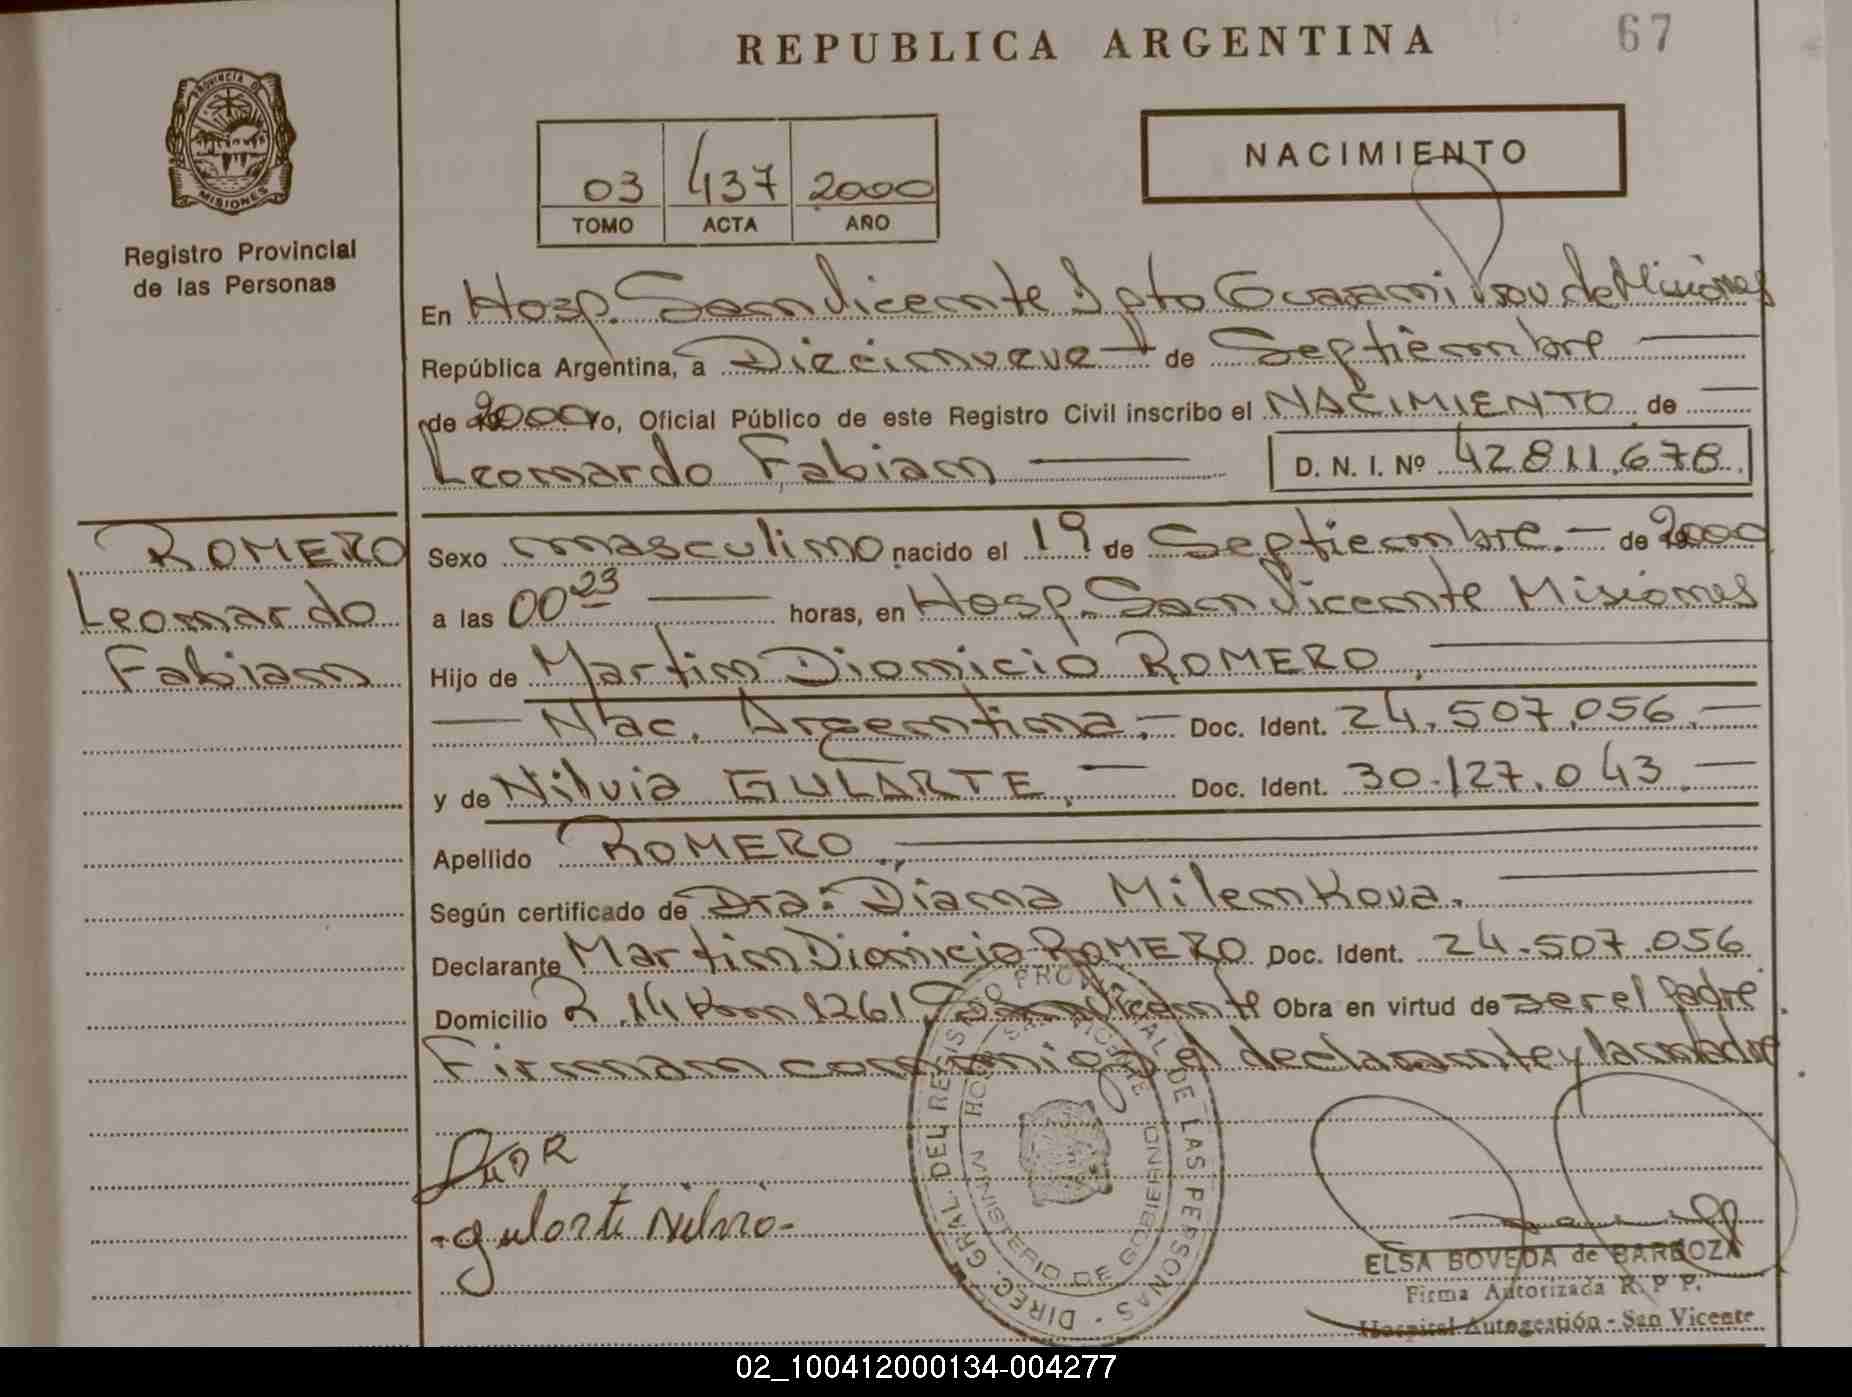 REPUBLICA ARGENTINA
67
PROVINCIA DE
MISIONES
Registro Provincial
de las Personas
03 437 2000
TOMO ACTA AÑO
NACIMIENTO
En Hosp. San Vicente Dpto Guarani Prov de Misiones
República Argentina, a Diecinueve de Septiembre
de 2000 Yo, Oficial Público de este Registro Civil inscribo el NACIMIENTO de
Leonardo Fabian D. N. I. Nº 42811.678
ROMERO
Leonardo
Fabian
Sexo masculino nacido el 19 de Septiembre.- de 2000
a las 00 23 horas, en Hosp. San Vicente Misiones
Hijo de Martin Dionicio ROMERO,
Nac. Argentina.- Doc. Ident. 24.507.056.-
y de Nilvia GULARTE,- Doc. Ident. 30.127.043.-
Apellido ROMERO.,
Según certificado de Dra: Diana Milenkova.
Declarante Martin Dionicio ROMERO Doc. Ident. 24.507.056
Domicilio R.14 Km 1261 San Vicente Obra en virtud de ser el padre
Firman conmigo el declarante y la madre
DIREC. GRAL. DEL REGISTRO PROVINCIAL DE LAS PERSONAS
HOSP. SAN VICENTE
MINISTERIO DE GOBIERNO
gularte Nilvia-
ELSA BOVEDA de BARBOZA
Firma Autorizada R. P. P.
Hospital Autogestión - San Vicente
02_100412000134-004277